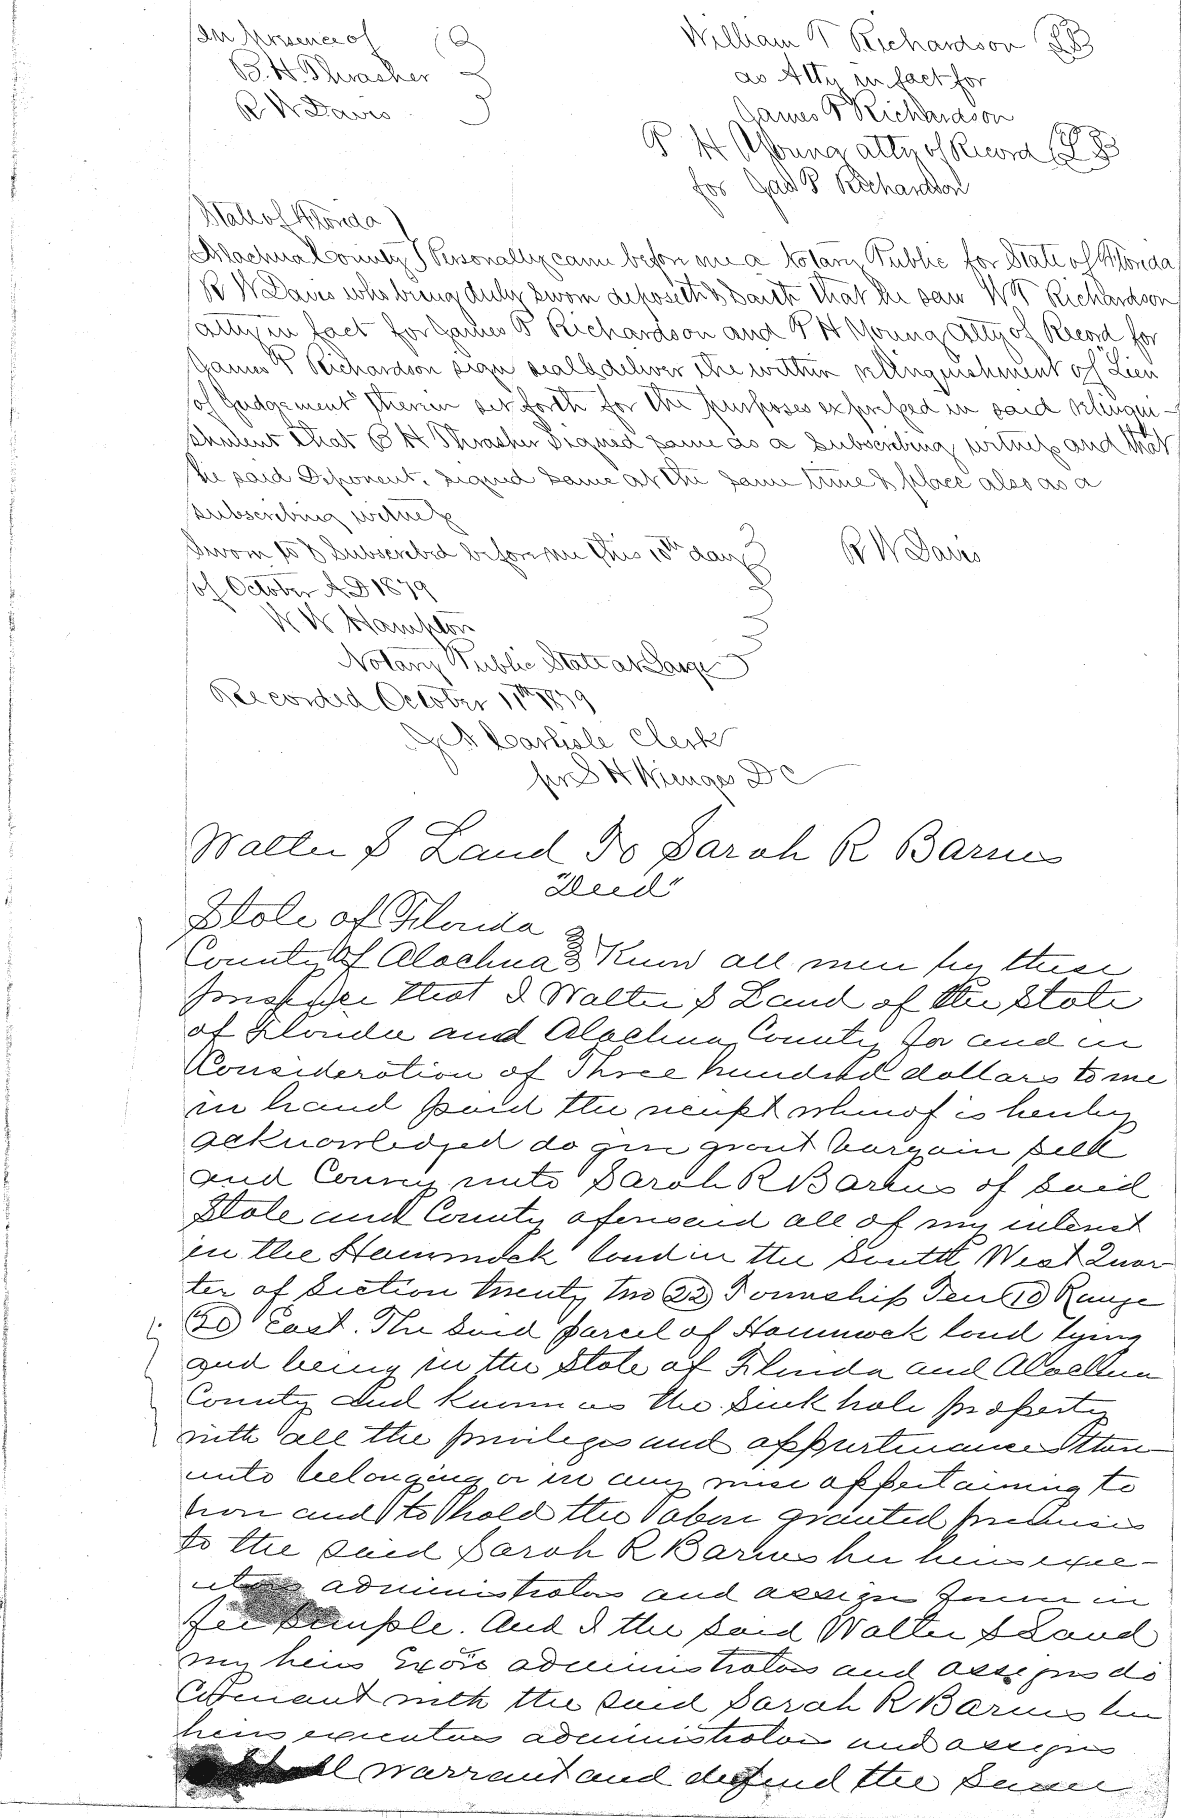 In presence of
B. H. Thrasher
R W Davis
William T Richardson LS
as Atty in fact for
James P Richardson
P H Young atty of Record LS
for Jas P Richardson
State of Florida
Alachua County Personally came before me a Notary Public for State of Florida
R W Davis who being duly sworn deposeth & saith that he saw W T Richardson
atty in fact for James P Richardson and P H Young Atty of Record for
James P Richardson sign seal & deliver the within relinquishment of "Lien
of Judgement" therein set forth for the purposes expressed in said relinqui-
shment that B H Thrasher signed same as a subscribing witness and that
he said Deponent. signed same at the same time & place also as a
subscribing witness
Sworn to & Subscribed before me this 10th day R W Davis
of October AD 1879
W W Hampton
Notary Public State at Large
Recorded October 11th 1879
J A Carlisle Clerk
pr S H Wienges D C
Walter S Land To Sarah R Barnes
"Deed"
State of Florida
County of Alachua Know all men by these
that I Walter S Land of the State
of Florida and Alachua County for and in
Consideration of Three hundred dollars to me
in hand paid the receipt whereof is hereby
acknowledged do give grant bargain sell
and Convey unto Sarah R Barnes of said
State and County aforesaid all of my interest
in the Hammock land in the South West Quar
ter of Section twenty two 22 Township Ten 10 Range
20 East. The said parcel of Hammock land lying
and being in the State of Florida and Alachua
County and known as the Sink hole property
with all the privileges and appurtinances then
unto belonging or in any wise appertaining to
have and to hold the above granted premises
to the said Sarah R Barnes her heirs exec-
utors administrators and assigns forever in
fee simple. And I the said Walter S Land
my heirs Exors administrators and assigns do
Covenant with the said Sarah R Barnes her
heirs executors administrators and assigns
shall warrant and defend the same